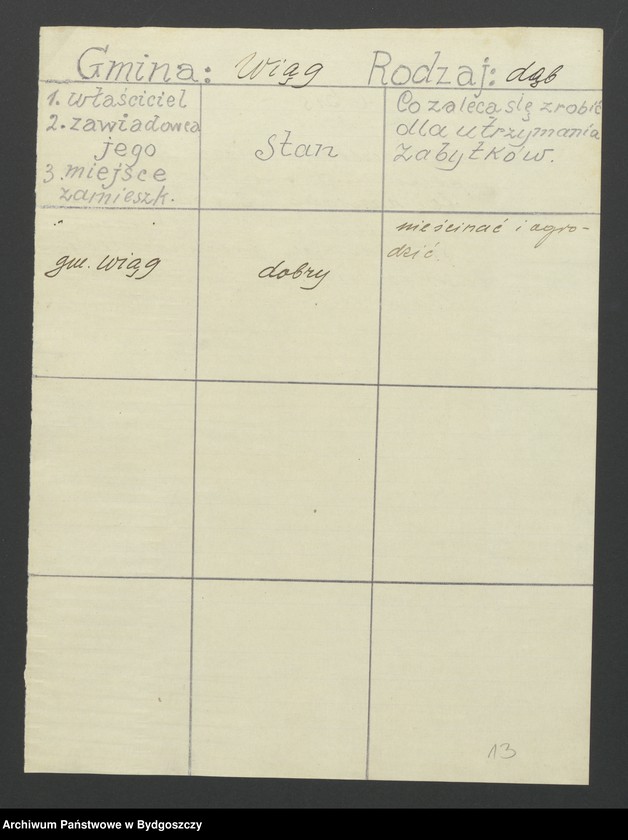 Gmina: Wiąg Rodzaj: dąb
1. właściciel
2. zawiadowca
jego
3. miejsce
zamieszk.
Stan
Co zaleca się zrobić
dla utrzymania
zabytków.
gm. Wiąg
dobry
nie ścinać i ogro-
dzić.
13
Archiwum Państwowe w Bydgoszczy